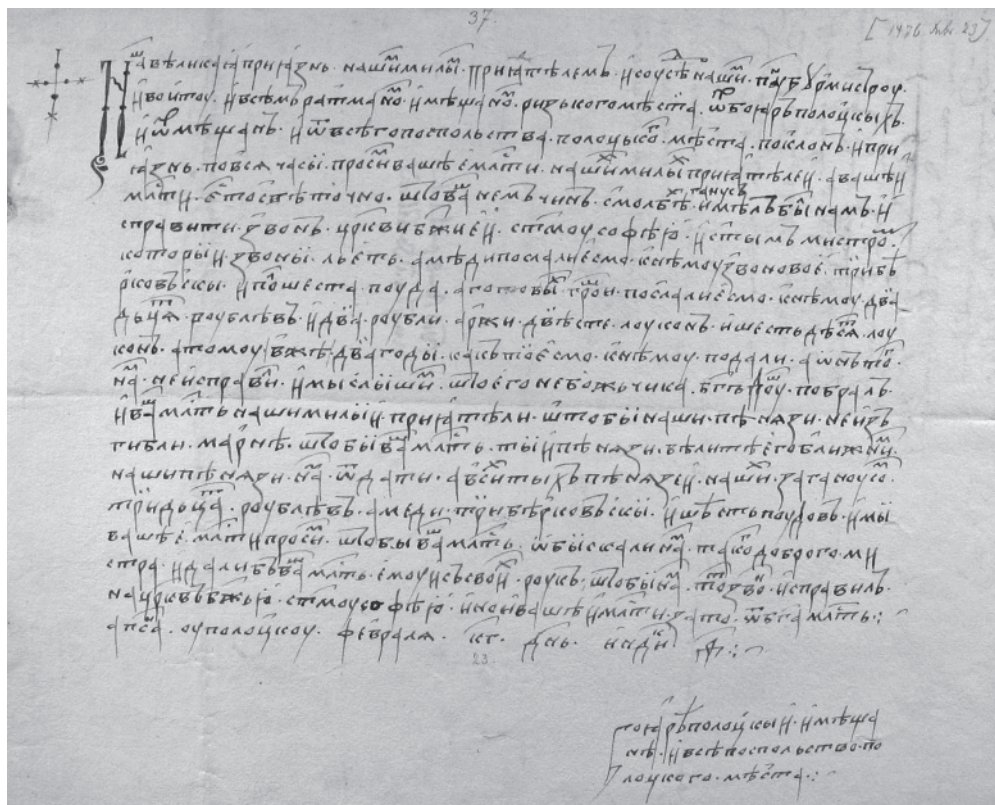 37.
[1476. Febr. 23].
Наша великаꙗ приꙗзнь. нашимъ милымъ. приꙗтѣлемъ. и соусѣдⷨ нашиⷨ. паⷩ бурмистроу.
и воитоу. и всѣмъ ратманоⷨ. и мѣщаноⷨ. ризького мѣста. ѿ боꙗръ полоцкыхъ.
и ѿ мѣщанъ. и ѿ всѣго поспольства. полоцькоⷢ. мѣста. поклонъ. и при
ꙗзнь. по всѧ часы. просиⷨ ваше е млⷭти. нашиⷯ милыⷯ приꙗтѣлеи. а вашеи
млⷭти. ѥсто свѣточно. што ваⷲ немъчинъ. смолнѣⷯ. ганусъ имѣлъ бы намъ. и
справити. звонъ. црк҃ви бжиеи. ст҃моу софѣю. и ст҃ымъ мистроⷨ.
которыи. звоны. льеть. а мѣди послали есмо. к нѣмоу звоновое. три бѣ
рковъскы. и по шеста. поуда. а готовыⷯ грⷲои. послали есмо. к нѣмоу. два
дьцⷮѧ. роублѣвъ. и два. роубли. а ржи. двѣсте. лоуконъ. и шестьдѣсѧⷮ. лоу
конъ. а томоу вжѣ. два годы. какъ то есмо. к нѣмоу. подали. а ѡнъ тоⷢ.
наⷨ. не исправиⷧ. и мы слышиⷨ. што его небожьчика. бг҃ъ поⷩу. побралъ.
и ваⷲ млⷭть наши милыи. приꙗтѣли. штобы наши. пѣнѧзи. не изъ
гибли. марнѣ. штобы ваⷲ млⷭть. тыи пѣнѧзи. вѣлитѣ его ближниⷨ.
наши пѣнѧзи. наⷨ. ѿдати. а всиⷯ тыхъ пѣнѧзеи. нашиⷯ. за ганоусоⷨ.
тридьцаⷮ. роублѣвъ. а меди. три бѣрковъскы. и шѣсть поудовъ. и мы
ваше е. млⷭти просиⷨ. штобы ваⷲ млⷭть. ѡбыскали наⷨ. такоⷢ доброго. ми
стра. и дали бъ ваⷲ млⷭть. емоу исъ своиⷯ. роукъ. штобы наⷨ. тоⷮ звоⷩ. исправилъ.
на црк҃въ бжью. ст҃моу софѣю. и нои вашеи млⷭти. за то.
а псаⷩ. оу полоцкоу. февралѧ. к҃г. дн҃ь. индиⷦ
23
боꙗрѣ полоцкыи. и мѣща
нѣ. и всѣ поспольство. по
лоцкого. мѣста.: